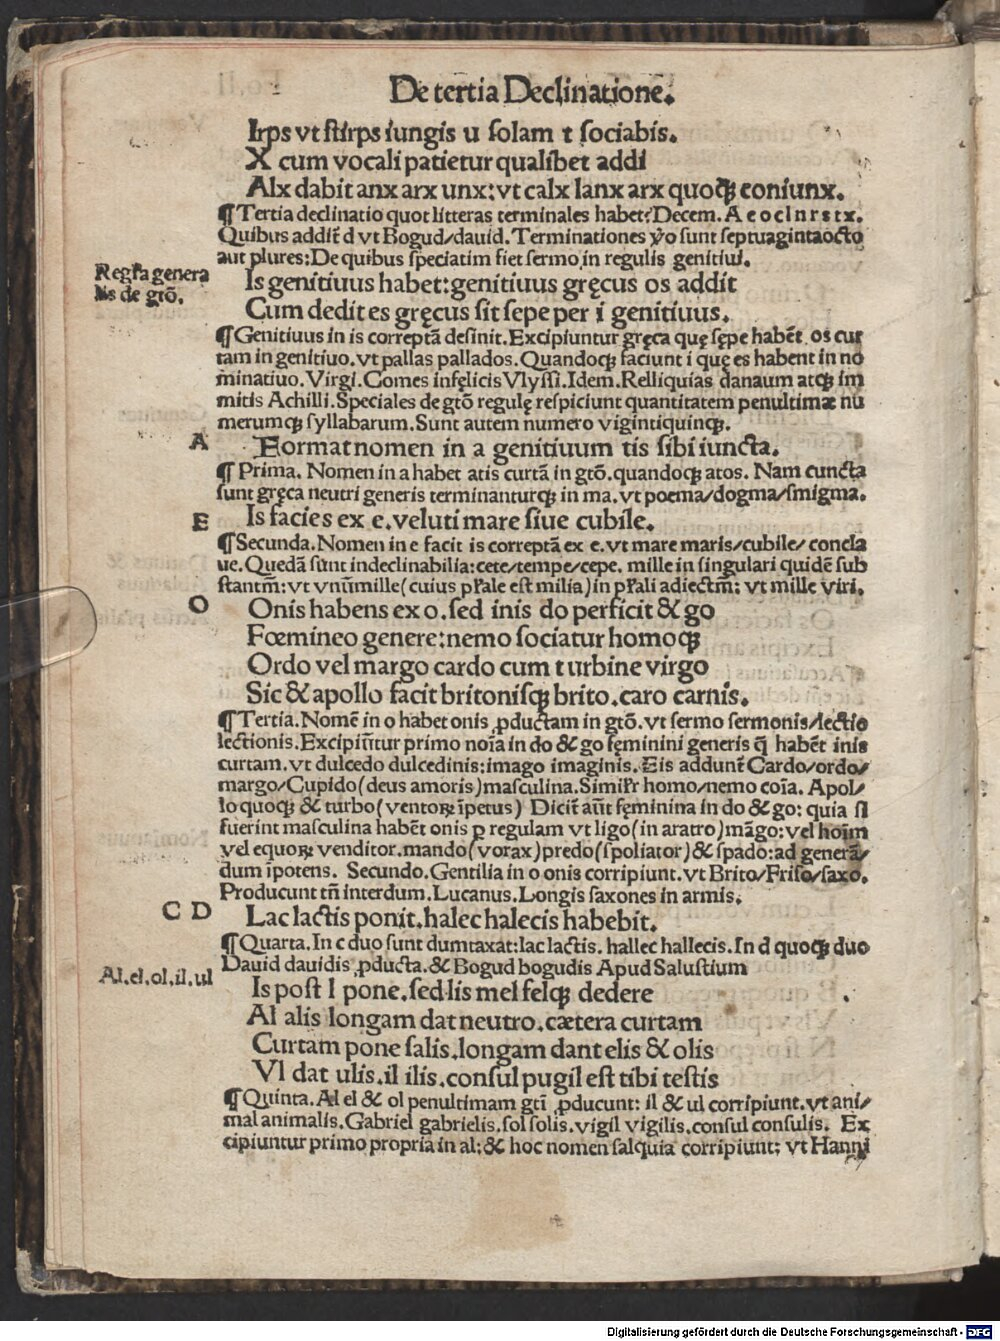 De tertia Declinatione.
Irps vt stirps iungis u solam t sociabis.
X cum vocali patietur qualibet addi
Alx dabit anx arx unx: vt calx lanx arx quoqꝫ coniunx.
¶ Tertia declinatio quot litteras terminales habet? Decem. A e o c l n r s t x.
Quibus addit̄ d vt Bogud/dauid. Terminationes ṽo sunt septuagintaocto
aut plures: De quibus speciatim fiet sermo in regulis genitiui.
Regl̄a genera
lis de gtō.
Is genitiuus habet: genitiuus gręcus os addit
Cum dedit es gręcus sit sepe per i genitiuus.
¶ Genitiuus in is correptā desinit. Excipiuntur gręca quę sępe habēt os cur
tam in genitiuo. vt pallas pallados. Quandoqꝫ faciunt i quę es habent in no
minatiuo. Virgi. Comes infęlicis Vlyssi. Idem. Relliquias danaum atqꝫ im
mitis Achilli. Speciales de gtō regulę respiciunt quantitatem penultimæ nu
merumqꝫ syllabarum. Sunt autem numero vigintiquinqꝫ.
A
Format nomen in a genitiuum tis sibi iuncta.
¶ Prima. Nomen in a habet atis curtā in gtō. quandoqꝫ atos. Nam cuncta
sunt gręca neutri generis terminanturqꝫ in ma. vt poema/dogma/smigma.
E
Is facies ex e. veluti mare siue cubile.
¶ Secunda. Nomen in e facit is correptā ex e. vt mare maris/cubile/ concla
ue. Quedā sunt indeclinabilia: cete/tempe/cepe. mille in singulari quidē sub
stantm̄: vt vnūmille (cuius pl̄rale est milia) in pl̄rali adiectm̄: vt mille viri.
O
Onis habens ex o. sed inis do perficit & go
Fœmineo genere: nemo sociatur homoqꝫ
Ordo vel margo cardo cum turbine virgo
Sic & apollo facit britonisqꝫ brito. caro carnis.
¶ Tertia. Nomē in o habet onis ꝓductam in gtō. vt sermo sermonis/lectio
lectionis. Excipiūtur primo noīa in do & go fęminini generis q̄ habēt inis
curtam. vt dulcedo dulcedinis: imago imaginis. Eis addunt̄ Cardo/ordo/
margo/Cupido (deus amoris) masculina. Simil̄r homo/nemo coīa. Apol/
lo quoqꝫ & turbo (ventoꝝ īpetus) Dicit̄ aūt fęminina in do & go: quia si
fuerint masculina habēt onis ꝑ regulam vt ligo (in aratro) māgo: vel hoīm
vel equoꝝ venditor. mando (vorax) predo (spoliator) & spado: ad generā/
dum īpotens. Secundo. Gentilia in o onis corripiunt. vt Brito/Friso/saxo.
Producunt tn̄ interdum. Lucanus. Longis saxones in armis.
C D
Lac lactis ponit. halec halecis habebit.
¶ Quarta. In c duo sunt dumtaxat: lac lactis. hallec hallecis. In d quoqꝫ duo
Dauid dauidis ꝓducta. & Bogud bogudis Apud Salustium
Al. el. ol. il. ul
Is post l pone. sed lis mel felqꝫ dedere
Al alis longam dat neutro. cætera curtam
Curtam pone salis. longam dant elis & olis
Vl dat ulis. il ilis. consul pugil est tibi testis
¶ Quinta. Al el & ol penultimam gtī ꝓducunt: il & ul corripiunt. vt ani/
mal animalis. Gabriel gabrielis. sol solis. vigil vigilis. consul consulis. Ex
cipiuntur primo propria in al: & hoc nomen sal quia corripiunt: vt Hanni
Digitalisierung gefördert durch die Deutsche Forschungsgemeinschaft - DFG